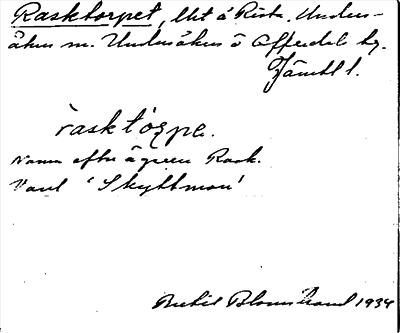 Rasktorpet, lht å Rista, Unders-
åkers sn. Undersåkers o Offerdals tg.
Jämtl l.
ràsktórpe.
Namn efter ägaren Rask.
Vard 'Skyttmon'
Bertil Blomstrand 1934